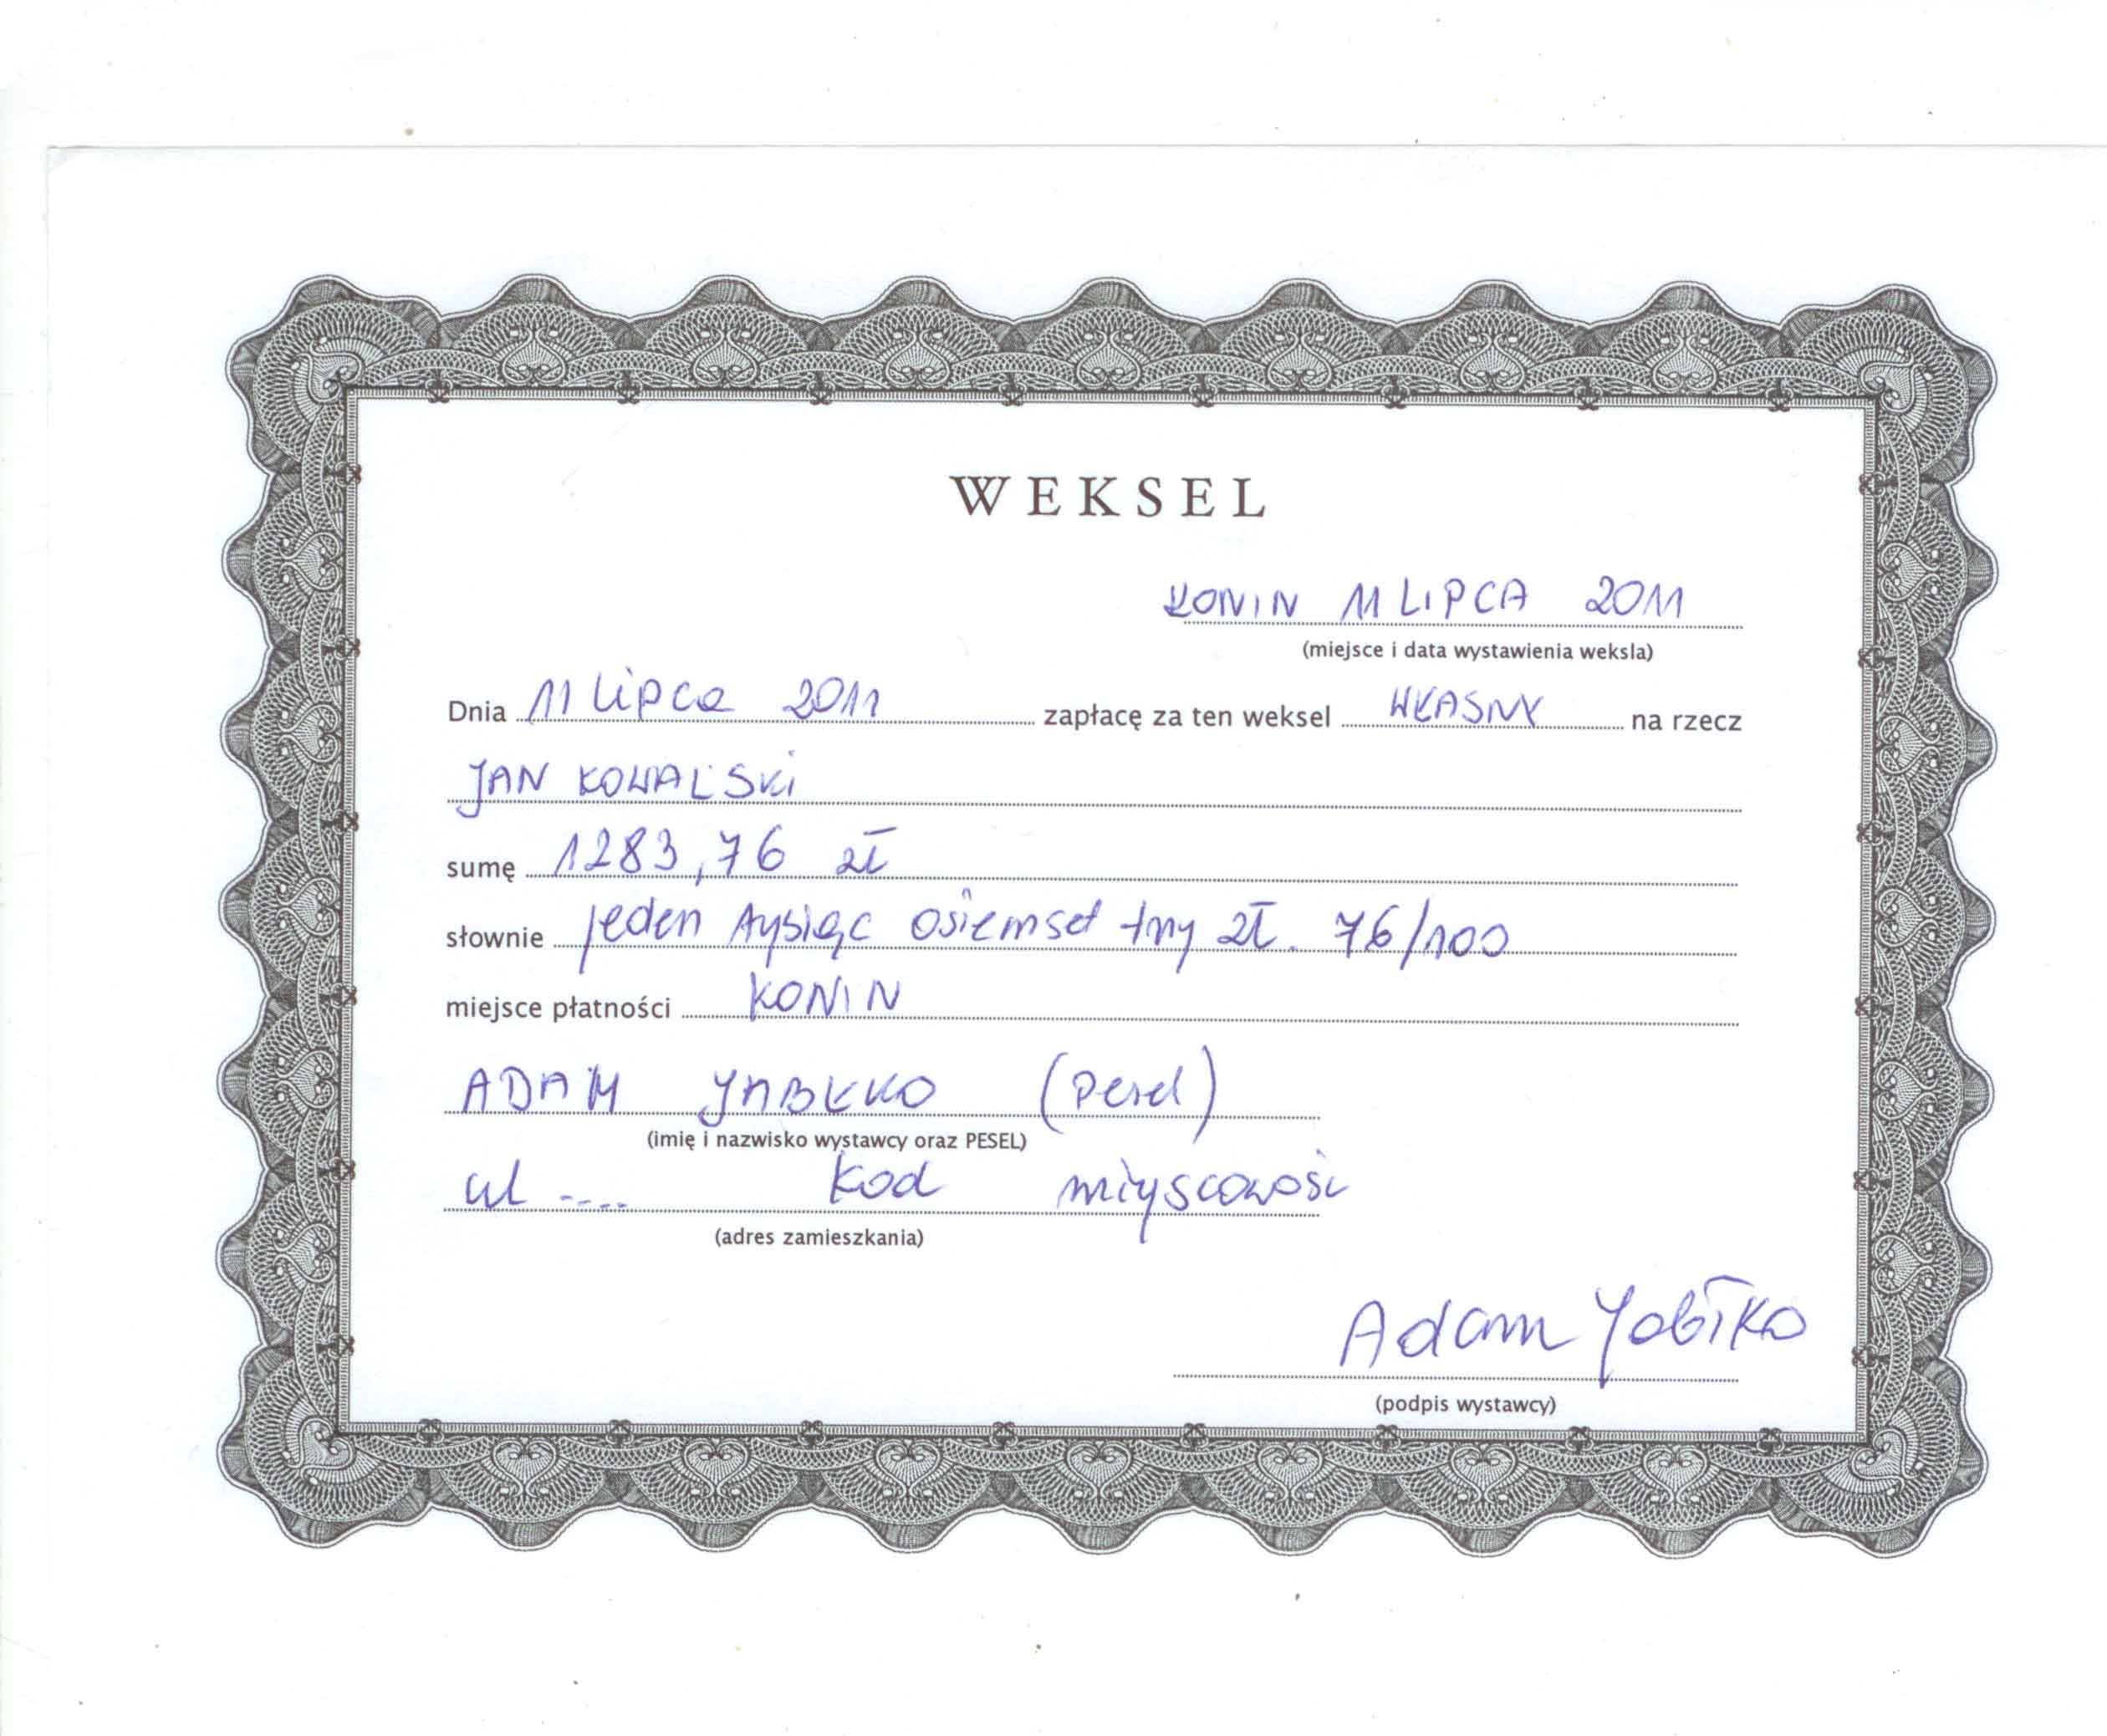 WEKSEL
KONIN 11 LIPCA 2011
(miejsce i data wystawienia weksla)
Dnia 11 Lipca 2011 zapłacę za ten weksel WŁASNY na rzecz
JAN KOWALSKI
sumę 1283,76 zł
słownie jeden tysiąc osiemset trzy zł. 76/100
miejsce płatności KONIN
ADAM JABŁKO (Pesel)
(imię i nazwisko wystawcy oraz PESEL)
ul .... kod miejscowość
(adres zamieszkania)
Adam Jabłko
(podpis wystawcy)